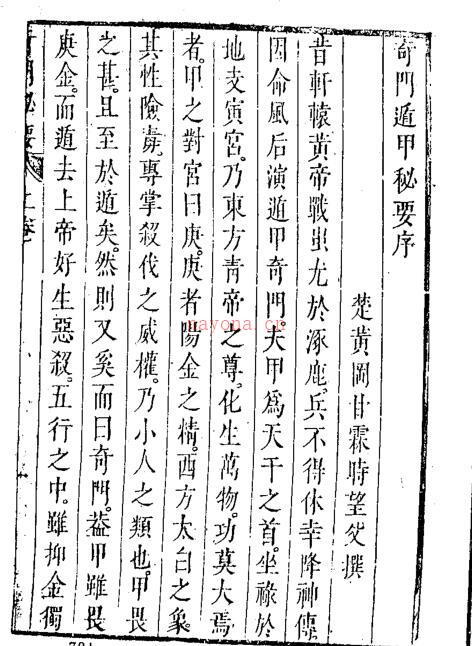 奇門遁甲秘要序
楚黃岡甘霖時望父撰
昔軒轅黃帝戰蚩尤於涿鹿兵不得休幸降神傳
因命風后演遁甲奇門夫甲爲天干之首坐祿於
地支寅宮乃東方靑帝之尊化生萬物功莫大焉
者甲之對宮曰庚庚者陽金之精西方太白之象
其性險毒專掌殺伐之威權乃小人之類也甲畏
之甚且至於遁矣然則又奚而曰奇門葢甲雖畏
庚金而遁去上帝好生惡殺五行之中雖抑金獨
奇門秘要
上卷
nayona.cn